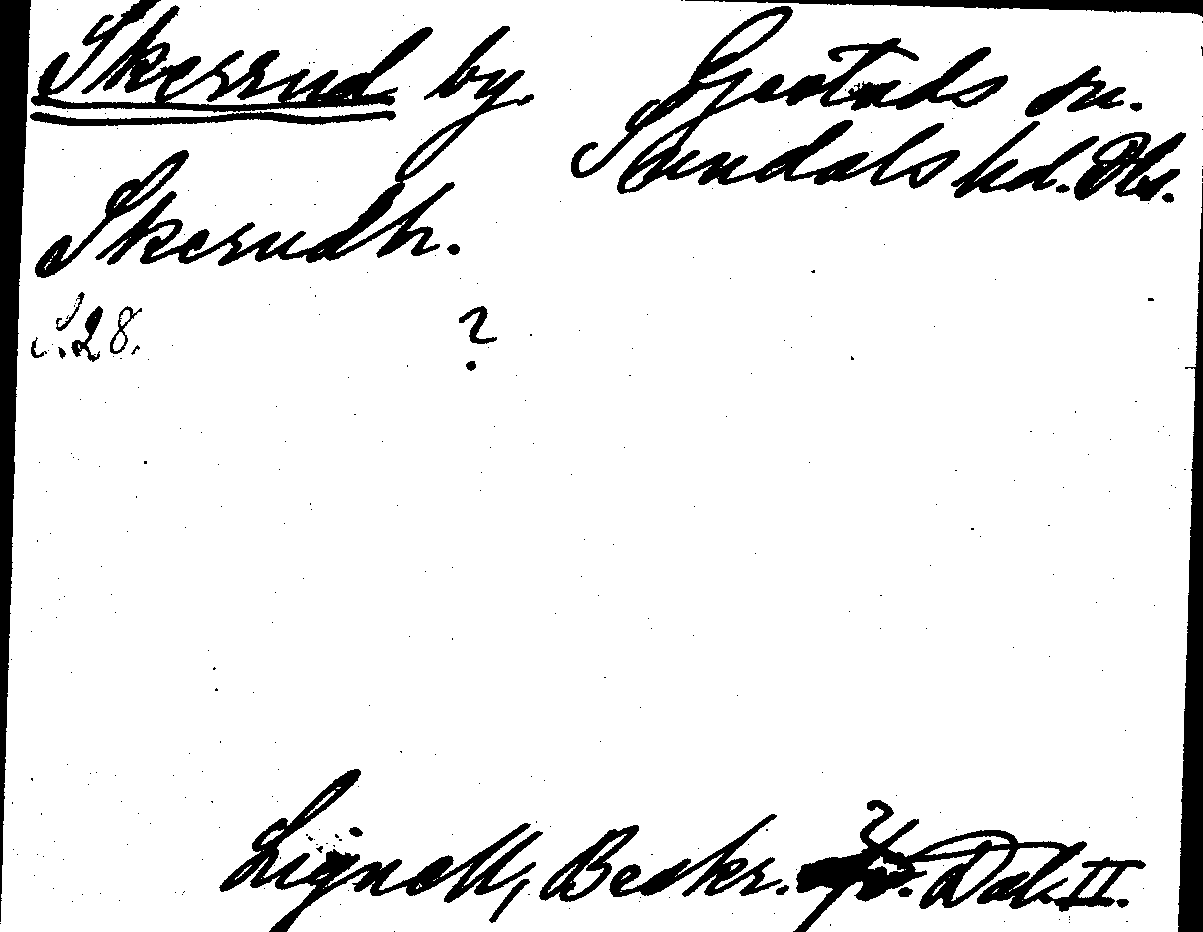 Skerrud by. Gestads sn.
Sundals hd. Dls.
Skerudh.
S. 28. ?
Lignell, Beskr. Dal. II.